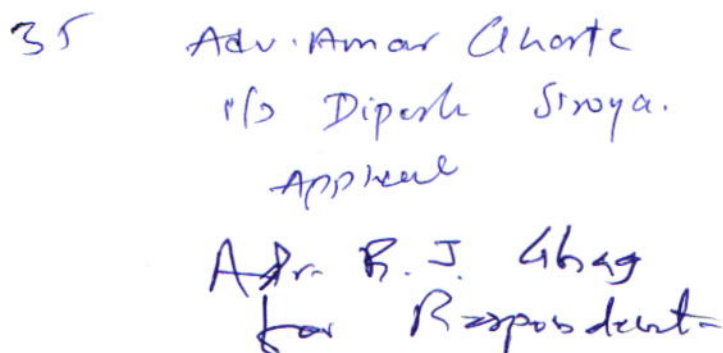 35 Adv. Amar Ghorte
i/b Dipesh Siroya.
Appeal
Adv. R. J. Ghag
for Respondent